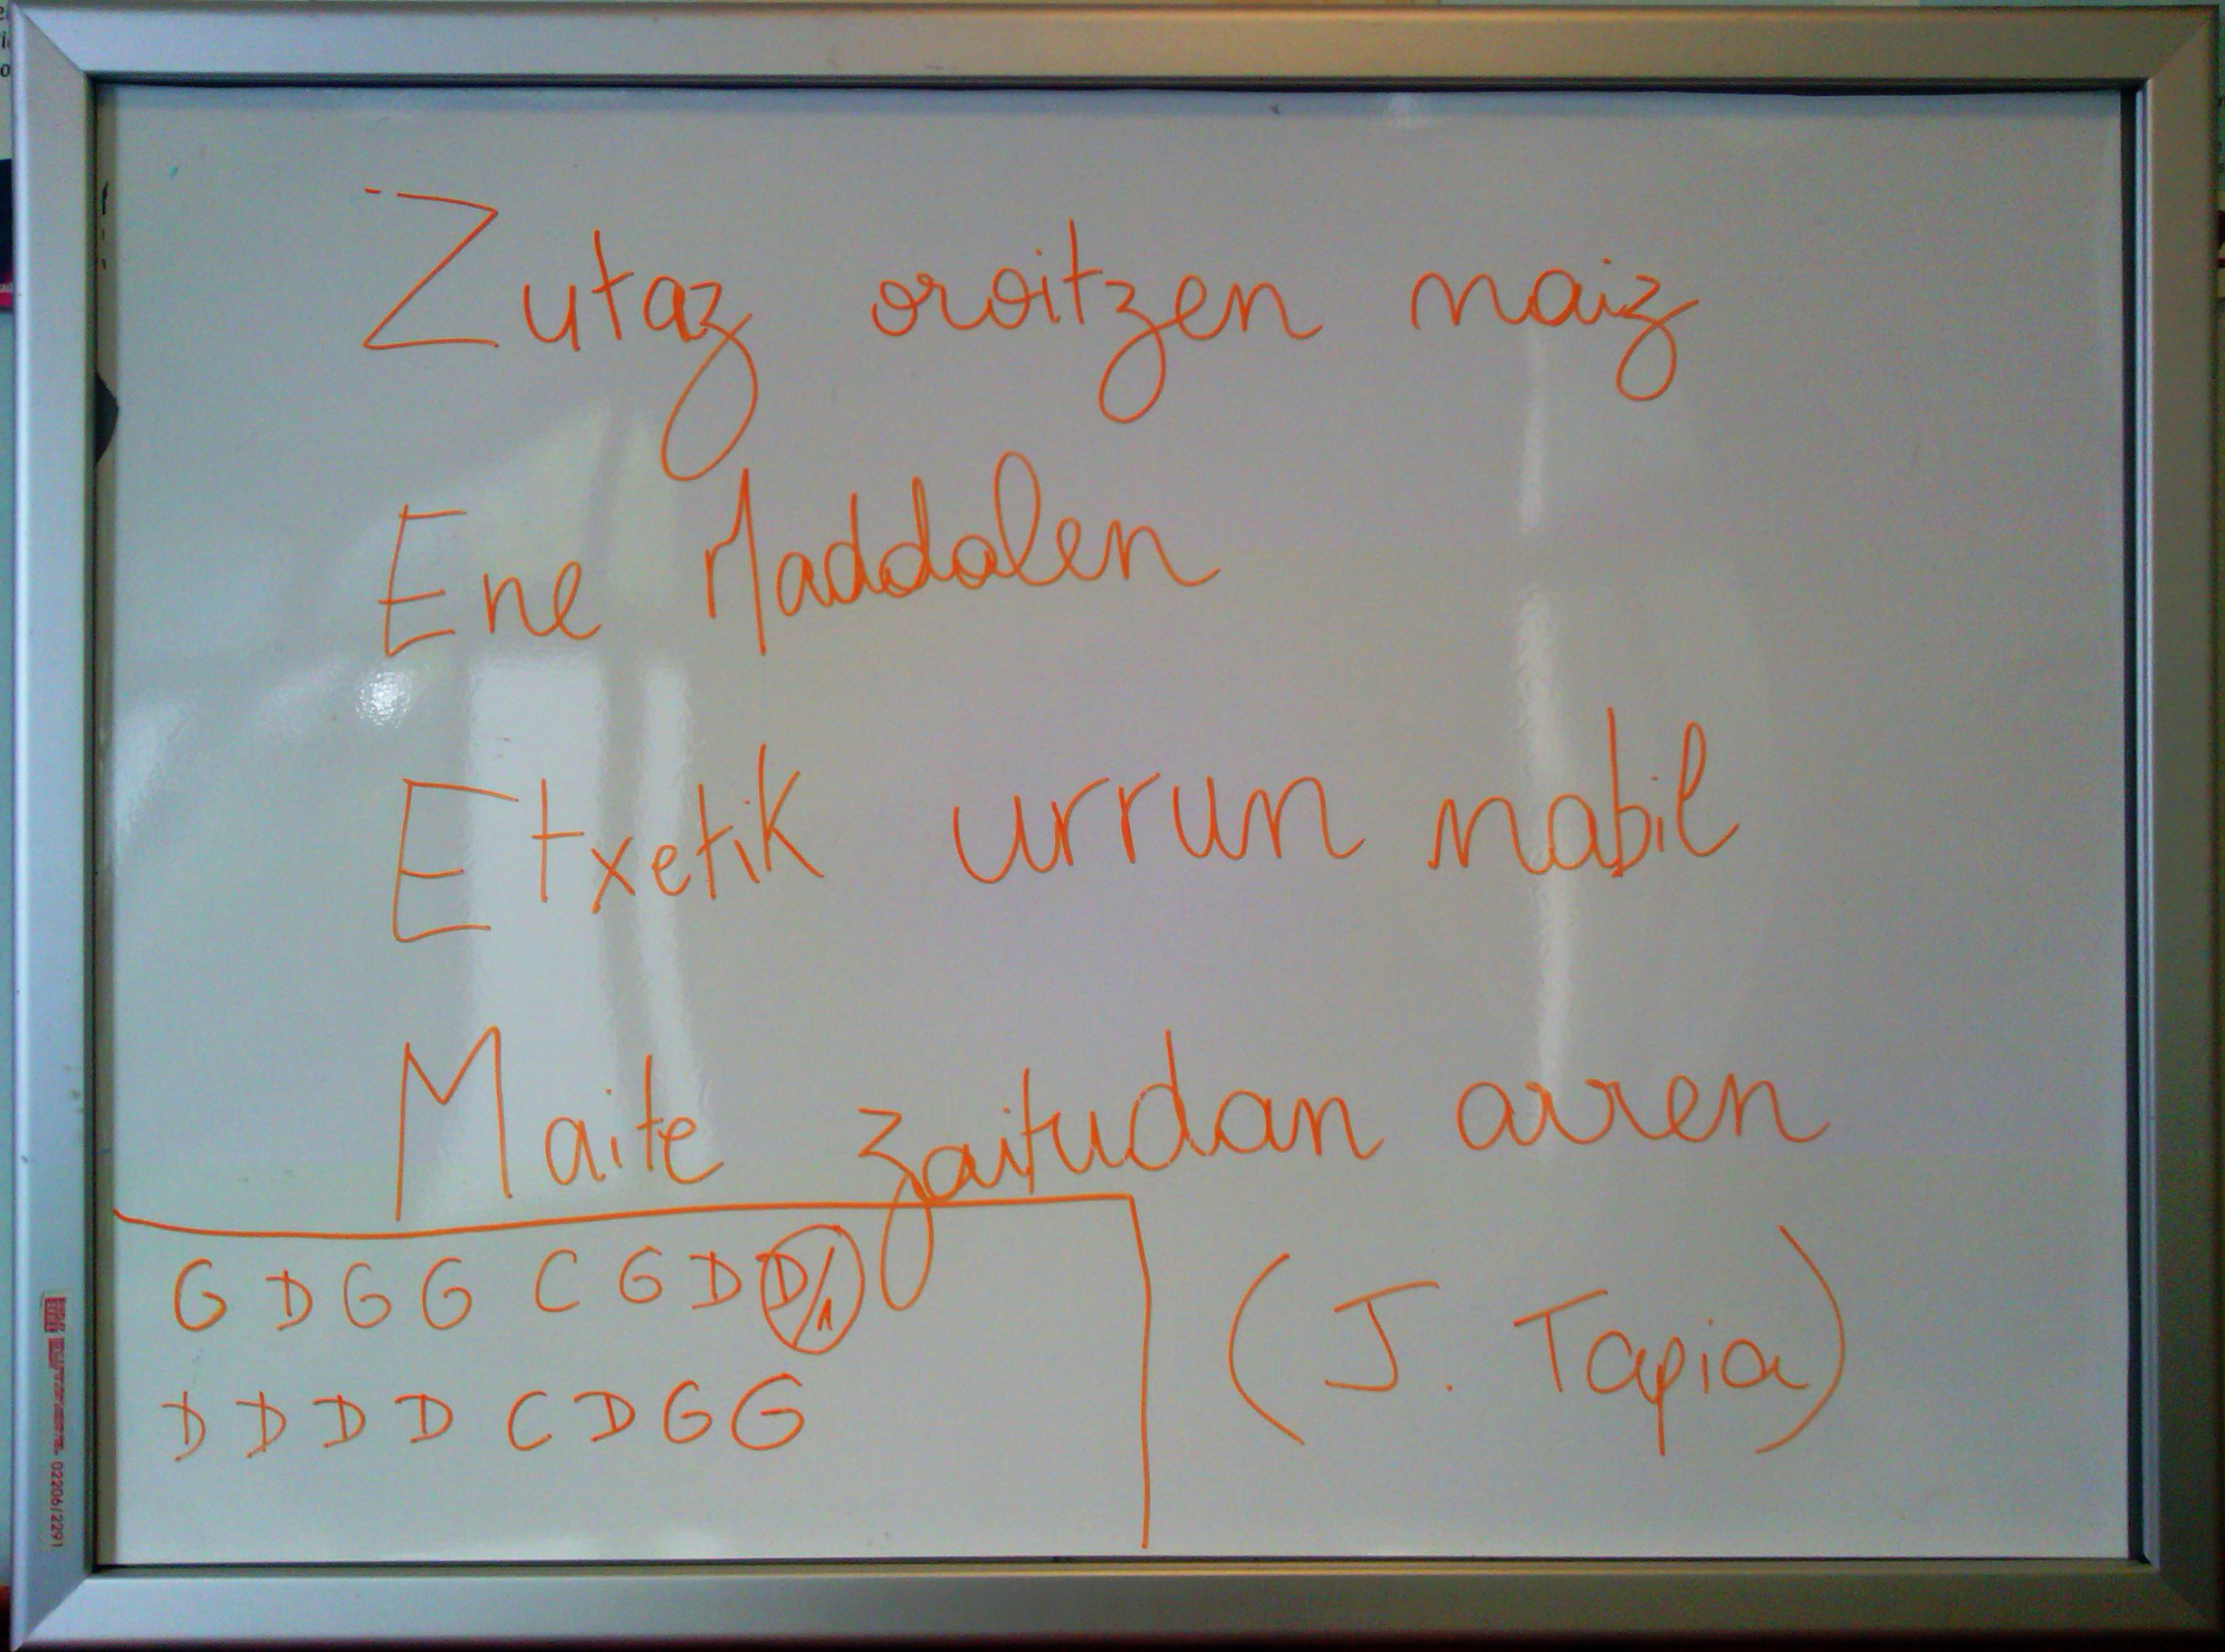 Zutaz oroitzen naiz
Ene Maddalen
Etxetik urrun nabil
Maite zaitudan arren
G D G G C G D D/1
D D D D C D G G
(J. Tapia)
02206/2291